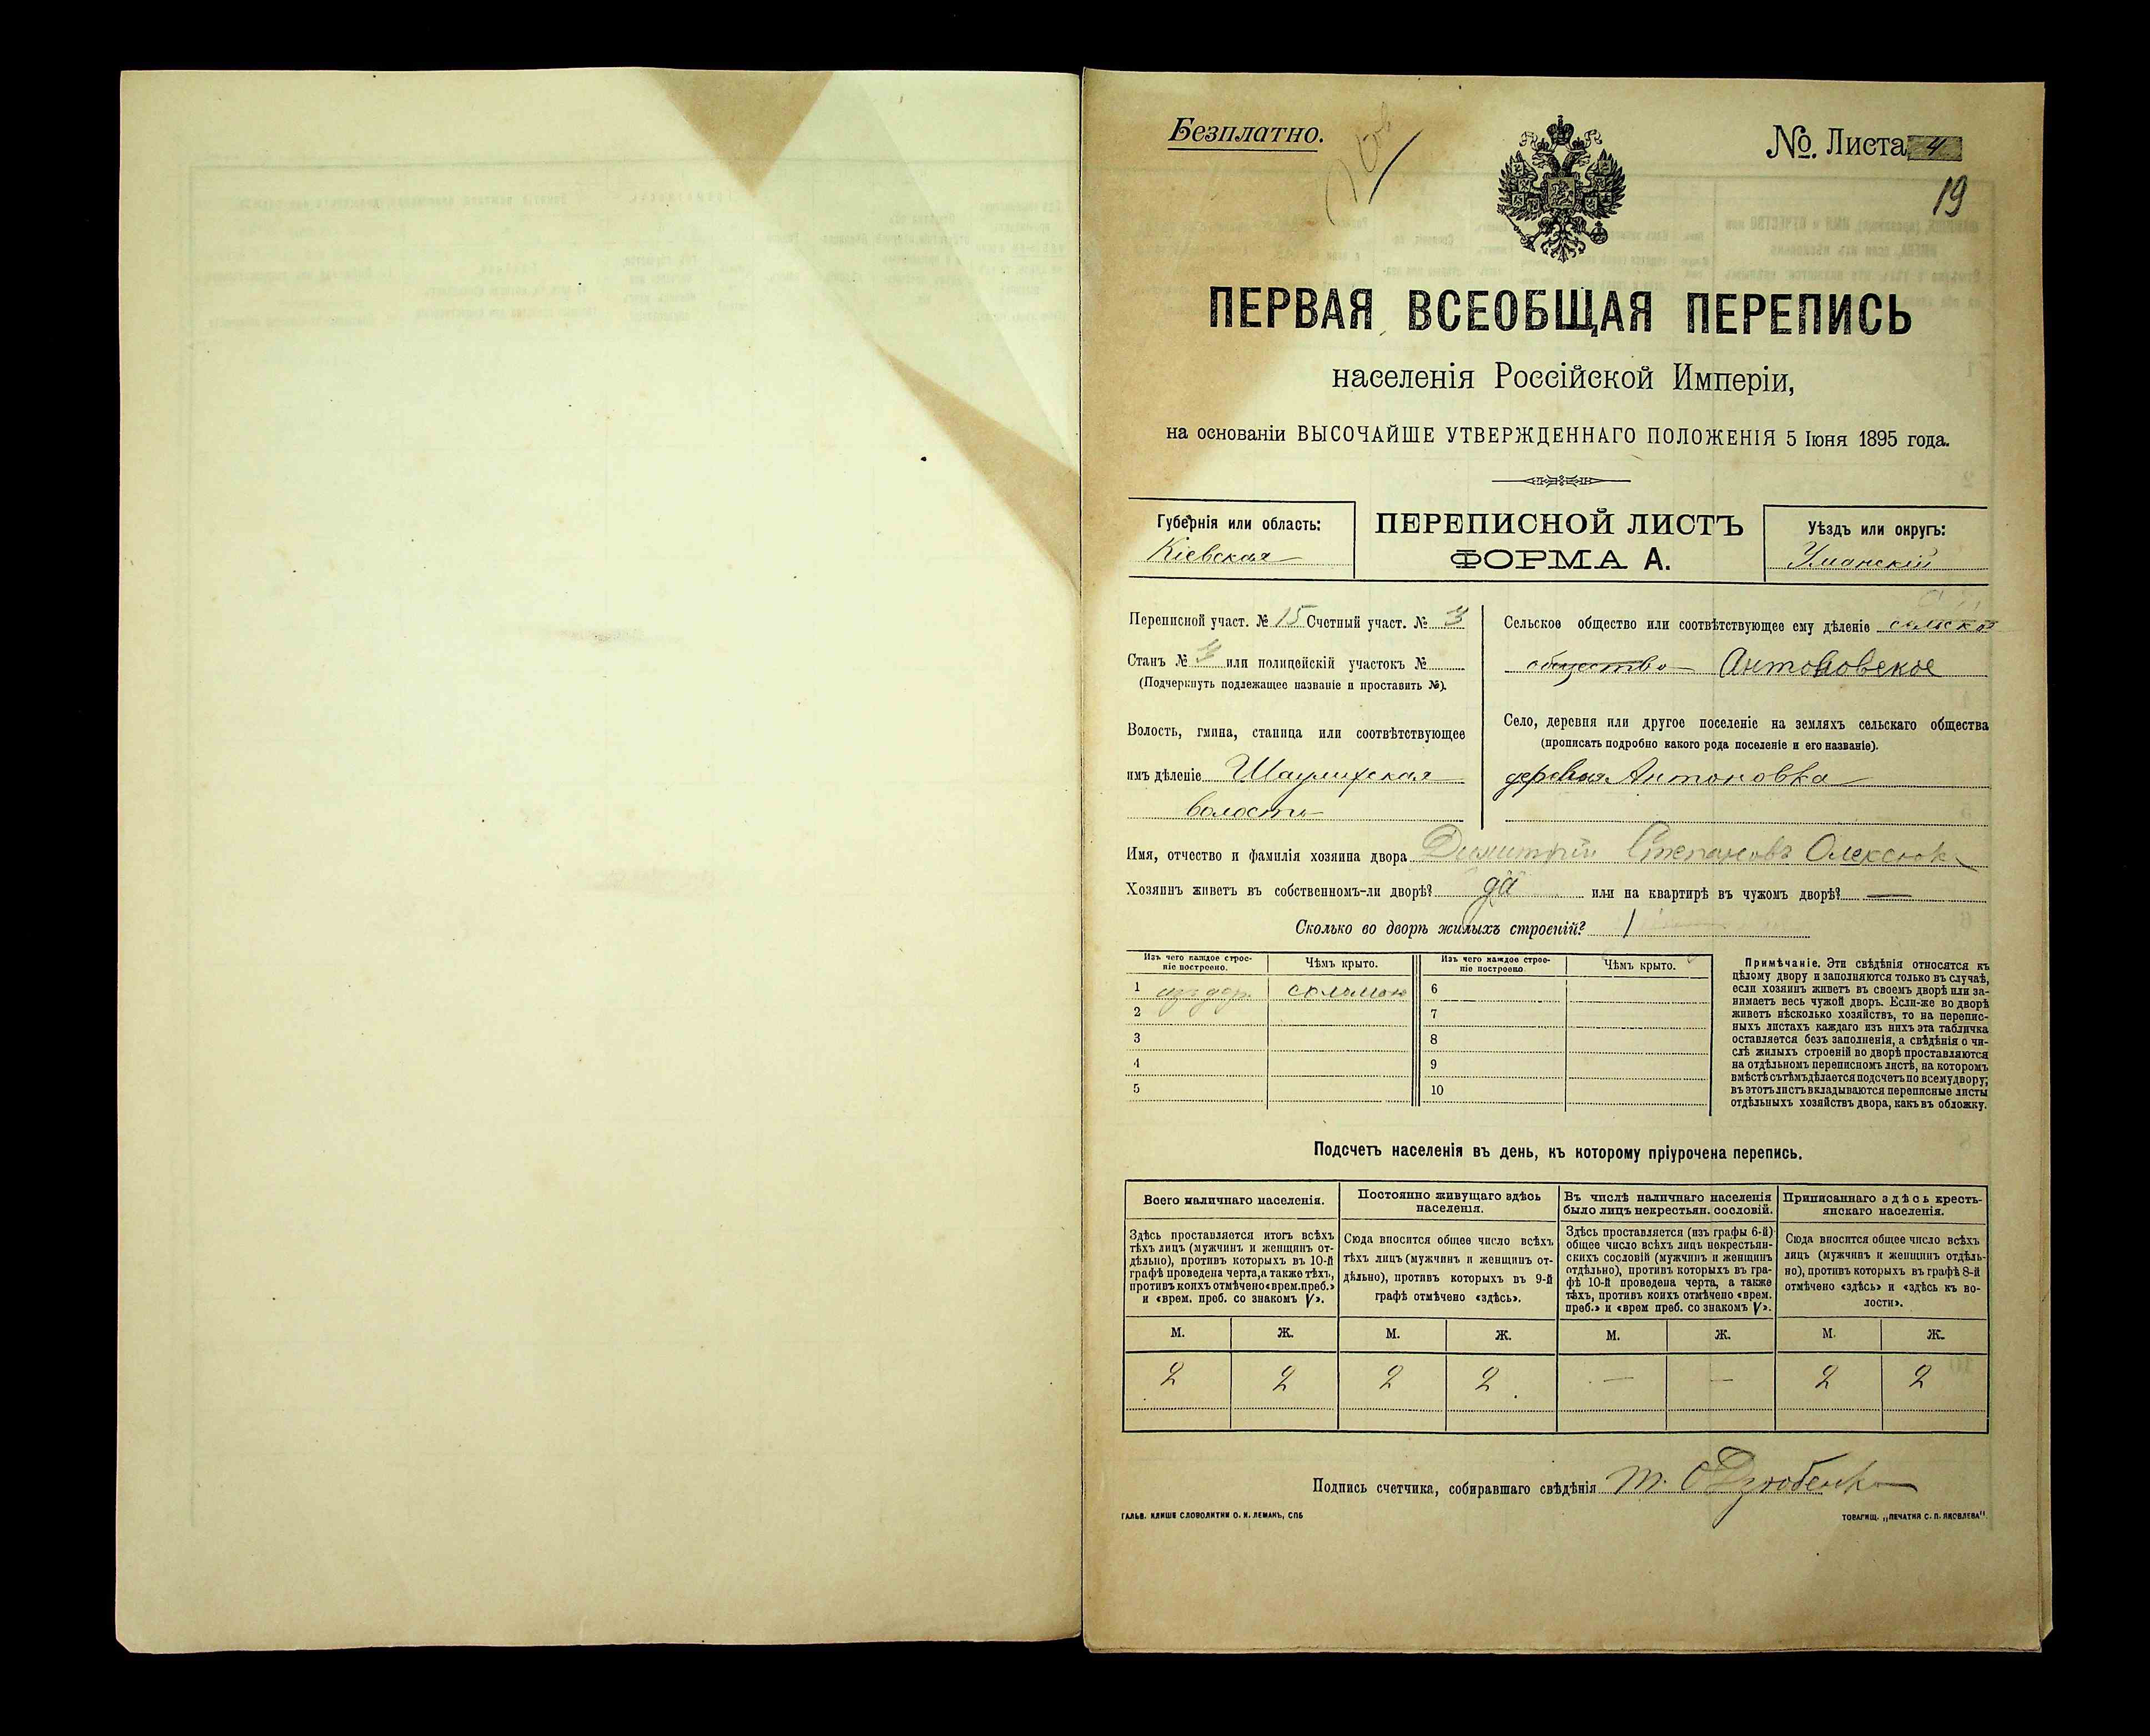 Безплатно.
№. Листа 4
19
ПЕРВАЯ ВСЕОБЩАЯ ПЕРЕПИСЬ
населенія Россійской Имперіи,
на основаніи ВЫСОЧАЙШЕ УТВЕРЖДЕННАГО ПОЛОЖЕНІЯ 5 Іюня 1895 года.
Губернія или область:
Кіевская
ПЕРЕПИСНОЙ ЛИСТЪ
ФОРМА А.
Уѣздъ или округъ:
Уманскій
Переписной участ. № 15 Счетный участ. № 3
Станъ № или полицейскій участокъ №
(Подчеркнуть подлежащее названіе и проставить №).
Волость, гмина, станица или соотвѣтствующее
имъ дѣленіе Шаулихская
волость
Сельское общество или соотвѣтствующее ему дѣленіе сельское
общество Антоновское
Село, деревня или другое поселеніе на земляхъ сельскаго общества
(прописать подробно какого рода поселеніе и его названіе).
деревня Антоновка
Имя, отчество и фамилія хозяина двора Димитрій Степановъ Олексюк
Хозяинъ живетъ въ собственномъ-ли дворѣ? да или на квартирѣ въ чужомъ дворѣ? —
Сколько во дворѣ жилыхъ строеній? 1
Изъ чего каждое строе-
ніе построено.
Чѣмъ крыто.
Изъ чего каждое строе-
ніе построено.
Чѣмъ крыто.
1 изъ дер. соломою 6
2 7
3 8
4 9
5 10
Примѣчаніе. Эти свѣдѣнія относятся къ
цѣлому двору и заполняются только въ случаѣ,
если хозяинъ живетъ въ своемъ дворѣ или за-
нимаетъ весь чужой дворъ. Если-же во дворѣ
живетъ нѣсколько хозяйствъ, то на перепис-
ныхъ листахъ каждаго изъ нихъ эта табличка
оставляется безъ заполненія, а свѣдѣнія о чи-
слѣ жилыхъ строеній во дворѣ проставляются
на отдѣльномъ переписномъ листѣ, на которомъ
вмѣстѣ съ тѣмъ дѣлается подсчетъ по всему двору;
въ этотъ листъ вкладываются переписные листы
отдѣльныхъ хозяйствъ двора, какъ въ обложку.
Подсчетъ населенія въ день, къ которому пріурочена перепись.
Всего наличнаго населенія.
Здѣсь проставляется итогъ всѣхъ
тѣхъ лицъ (мужчинъ и женщинъ от-
дѣльно), противъ которыхъ въ 10-й
графѣ проведена черта, а также тѣхъ,
противъ коихъ отмѣчено «врем. преб.»
и «врем. преб. со знакомъ V».
Постоянно живущаго здѣсь
населенія.
Сюда вносится общее число всѣхъ
тѣхъ лицъ (мужчинъ и женщинъ от-
дѣльно), противъ которыхъ въ 9-й
графѣ отмѣчено «здѣсь».
Въ числѣ наличнаго населенія
было лицъ некрестьян. сословій.
Здѣсь проставляется (изъ графы 6-й)
общее число всѣхъ лицъ некрестьян-
скихъ сословій (мужчинъ и женщинъ
отдѣльно), противъ которыхъ въ гра-
фѣ 10-й проведена черта, а также
тѣхъ, противъ коихъ отмѣчено «врем.
преб.» и «врем преб. со знакомъ V».
Приписаннаго здѣсь кресть-
янскаго населенія.
Сюда вносится общее число всѣхъ
лицъ (мужчинъ и женщинъ отдѣль-
но), противъ которыхъ въ графѣ 8-й
отмѣчено «здѣсь» и «здѣсь къ во-
лости».
М. Ж. М. Ж. М. Ж. М. Ж.
2 2 2 2 — — 2 2
Подпись счетчика, собиравшаго свѣдѣнія Дзюбенко
ГАЛЬВ. КЛИШЕ СЛОВОЛИТНИ О. И. ЛЕМАНЪ, СПБ
ТОВАРИЩ. „ПЕЧАТНЯ С. П. ЯКОВЛЕВА".